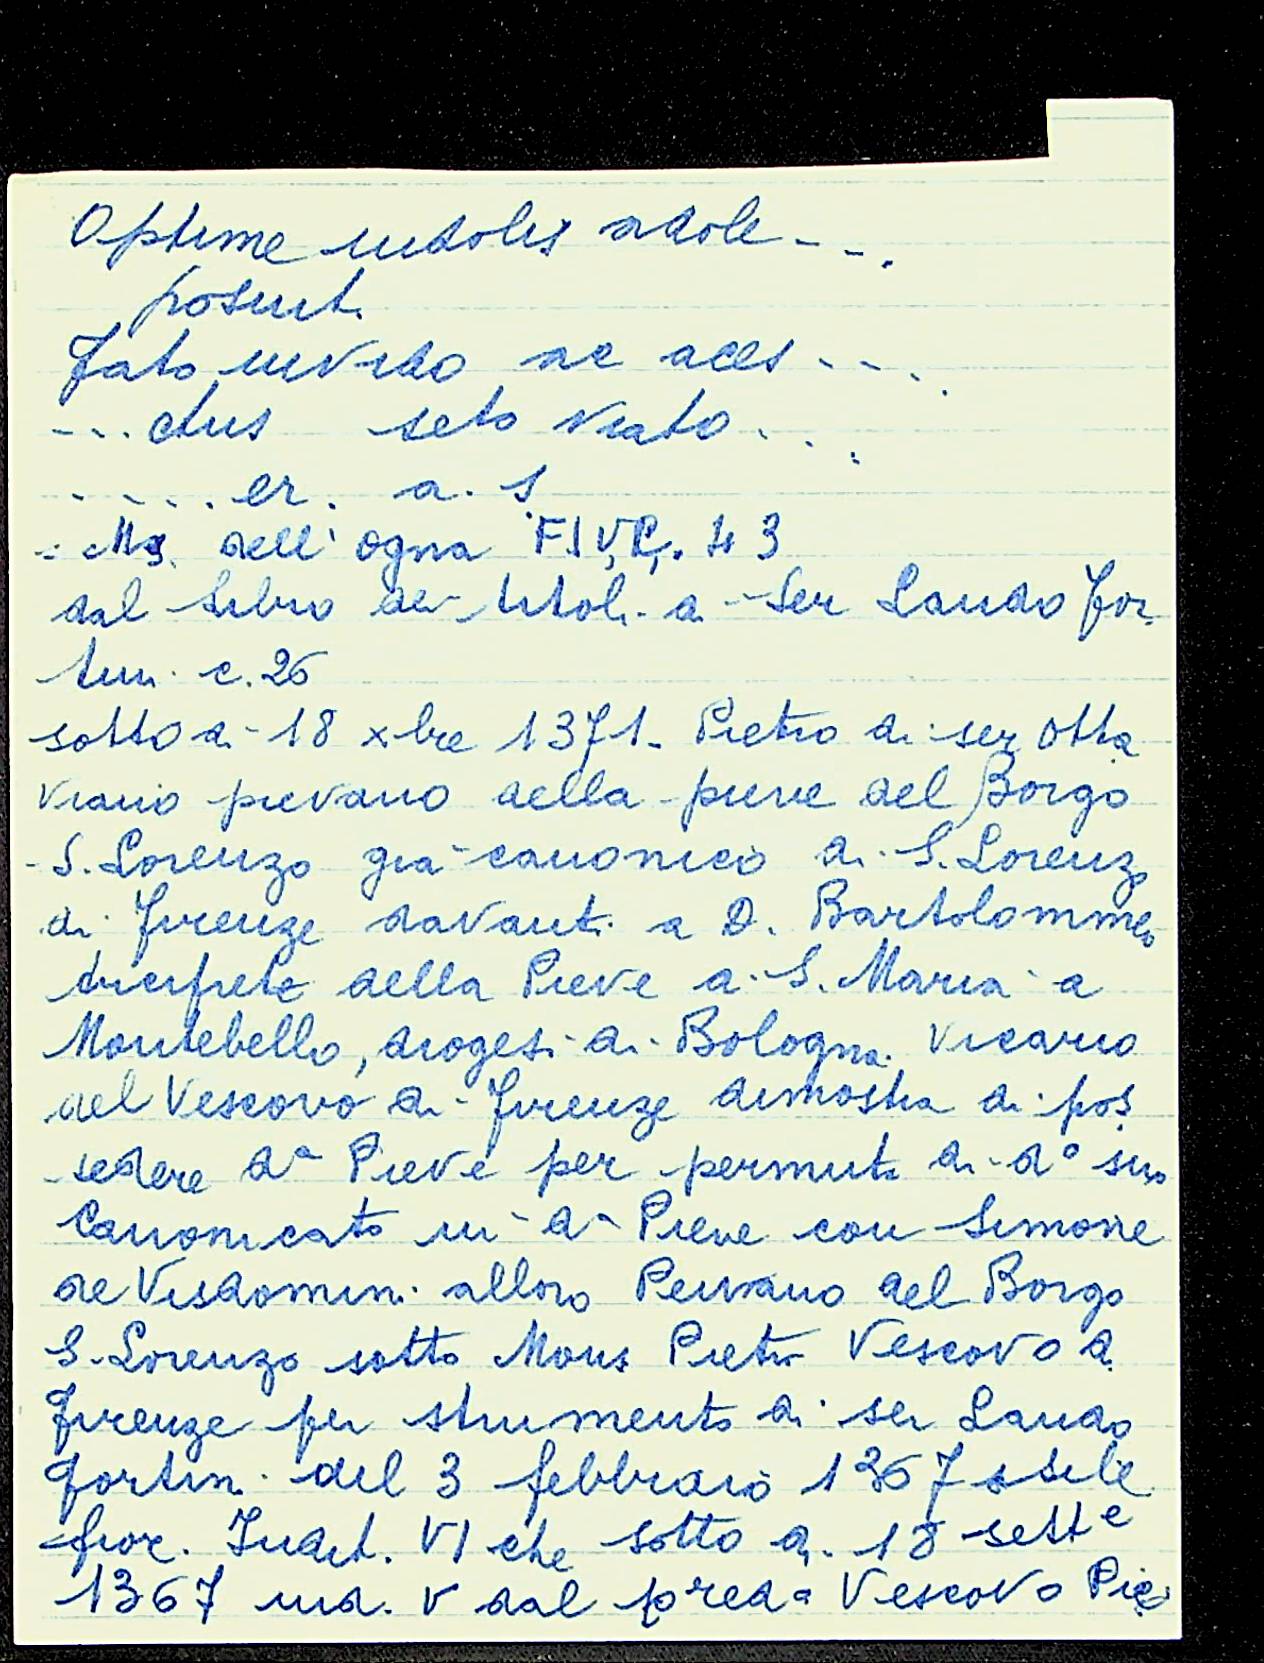 Optime indolis adole - - .
posuit.
Fato invido ac aces - - - .
- - . ctus seto viato . . .
. - . . er. a. s
Ms. dell' ogna F.IV, C,. 43
dal libro dei titoli di Ser Lando For
tin. c. 26
sotto di 18 xbre 1371. Pietro di ser Otta
viano pievano della pieve del Borgo
S. Lorenzo già canonico di S. Lorenzo
di Firenze davanti a D. Bartolommeo
della Pieve di S. Maria a
Montebello, diogesi di Bologna. Vicario
del Vescovo di Firenze dimostra di pos
sedere da Pieve per permuta di do suo
Canonicato in da Pieve con Simone
de Visdomini allora Peivano del Borgo
S. Lorenzo sotto Mons Pietro Vescovo di
Firenze per strumento di ser Lando
Fortin. del 3 febbraio 1367 stile
fior. Indict. VI che sotto di. 18 sette
1367 ind. V dal preda Vescovo Pie